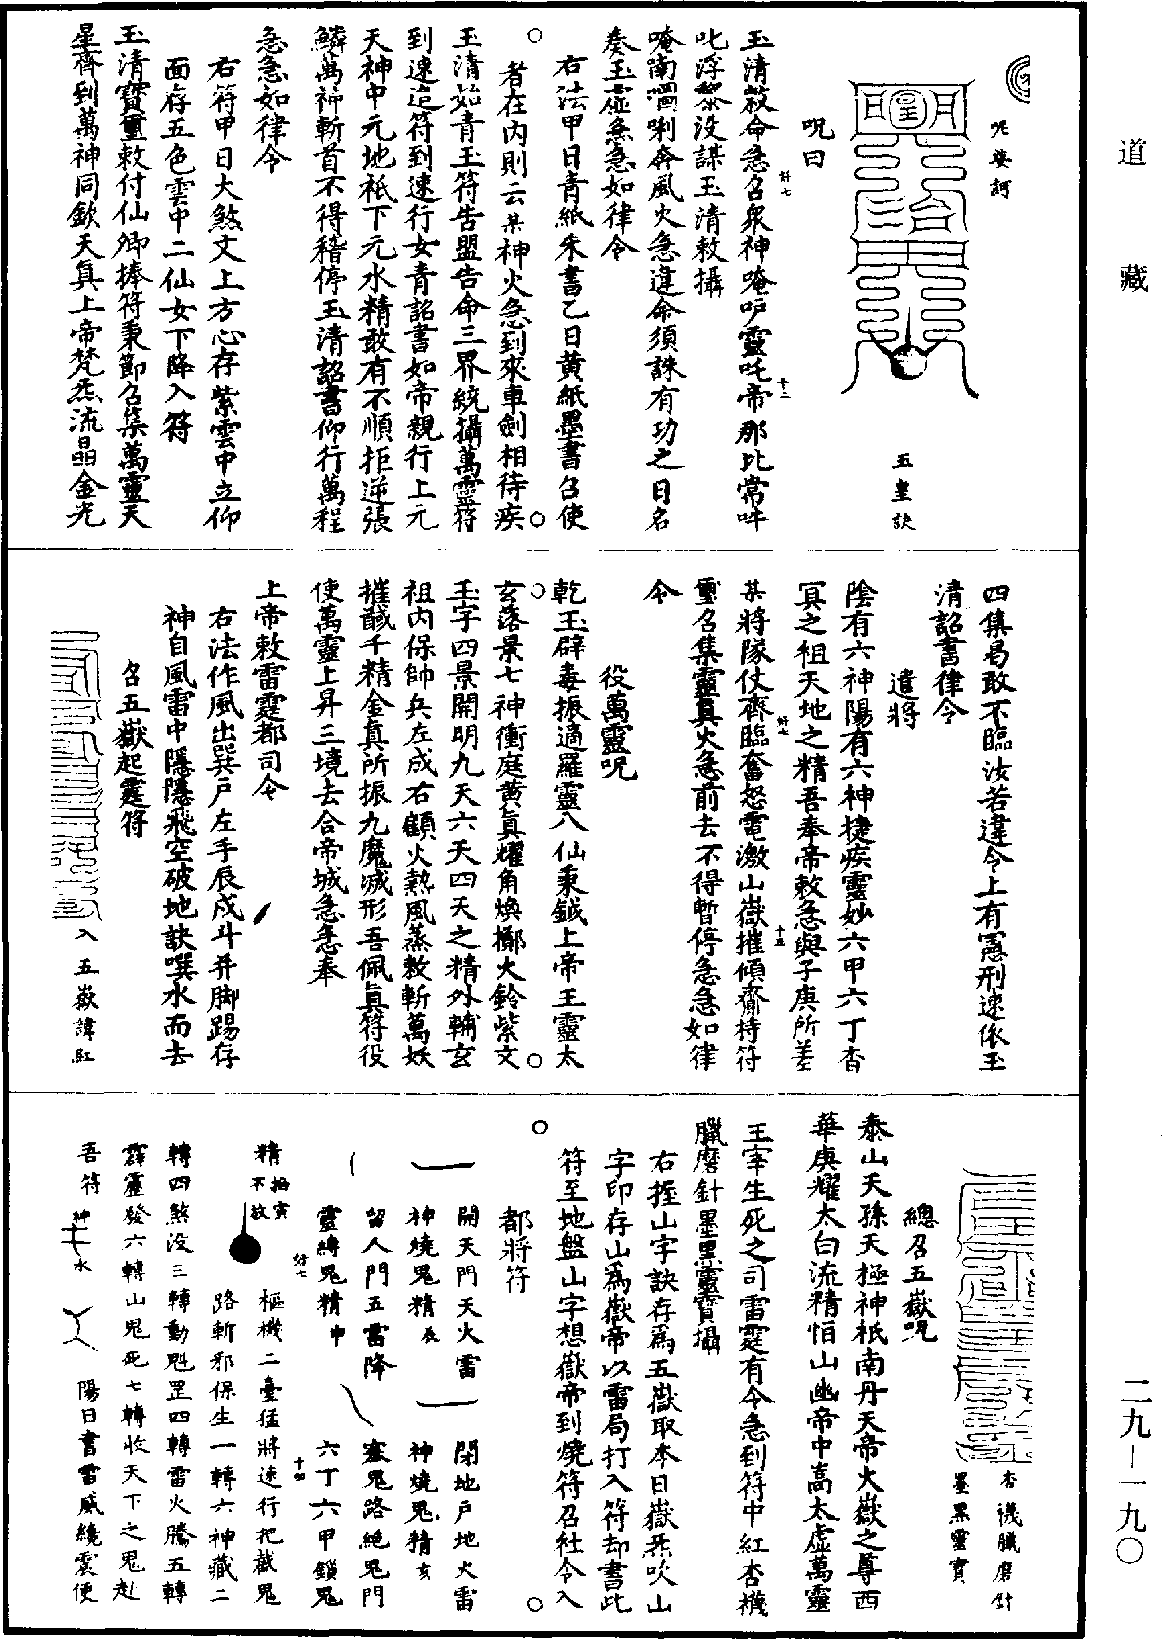 道藏
二九—一九〇
呢娑訶
五皇訣
呪曰
玉清敕命急召衆神唵吖靈吒帝那比常吽
叱浮黎没謀玉清敕攝
唵喃𠺗唎奔風火急違命須誅有功之日名
奏玉虛急急如律令
右法甲日青紙朱書乙日黄紙墨書召使
者在内則云某神火急到來車劍相待疾
玉清始青玉符告盟告命三界統攝萬靈符
到速追符到速行女青詔書如帝親行上元
天神中元地祇下元水精敢有不順拒逆張
鱗萬神斬首不得稽停玉清詔書仰行萬程
急急如律令
右符甲日大煞文上方心存紫雲中立仰
面存五色雲中二仙女下降入符
玉清寶璽敕付仙卿捧符秉節召集萬靈天
星齊到萬神同欽天真上帝梵炁流晶金光
四集曷敢不臨汝若違令上有憲刑速依玉
清詔書律令
遣將
陰有六神陽有六神捷疾靈妙六甲六丁杳
冥之祖天地之精吾奉帝敕急與子庚所差
某將隊仗齊臨奮怒雷激山嶽摧傾齋持符
璽召集靈真火急前去不得暫停急急如律
令
役萬靈呪
乾玉辟毒振適羅靈八仙秉鉞上帝王靈太
玄落景七神衝庭黄真耀角煥擲火鈴紫文
玉字四景開明九天六天四天之精外輔玄
祖内保帥兵左成右顧火熱風蒸敕斬萬妖
摧馘千精金真所振九魔滅形吾佩真符役
使萬靈上昇三境去合帝城急急奉
上帝敕雷霆都司令
右法作風出巽户左手辰戌斗并脚踢存
神自風雷中隱隱飛空破地訣噀水而去
召五嶽起霆符
入五嶽諱紅
杏襪臘磨針
墨黑靈寶
總召五嶽呪
泰山天孫天極神祇南丹天帝火嶽之尊西
華庚耀太白流精怕山幽帝中高太虛萬靈
王宰生死之司雷霆有令急到符中紅杏襪
臘磨針墨黑靈寶攝
右握山字訣存爲五嶽取本日嶽炁吹山
字印存山爲嶽帝以雷局打入符却書此
符至地盤山字想嶽帝到燒符召社令入
都將符
開天門天火雷
神燒鬼精辰
閉地户地火雷
神燒鬼精亥
留人門五雷降
靈縛鬼精申
塞鬼路絶鬼門
六丁六甲鎖鬼
精
樞機二臺猛將速行把截鬼
路斬邪保生一轉六神藏二
轉四煞没三轉動魁罡四轉雷火騰五轉
霹靂發六轉山鬼死七轉收天下之鬼赴
吾符
水
陽日書雷威繞雲便